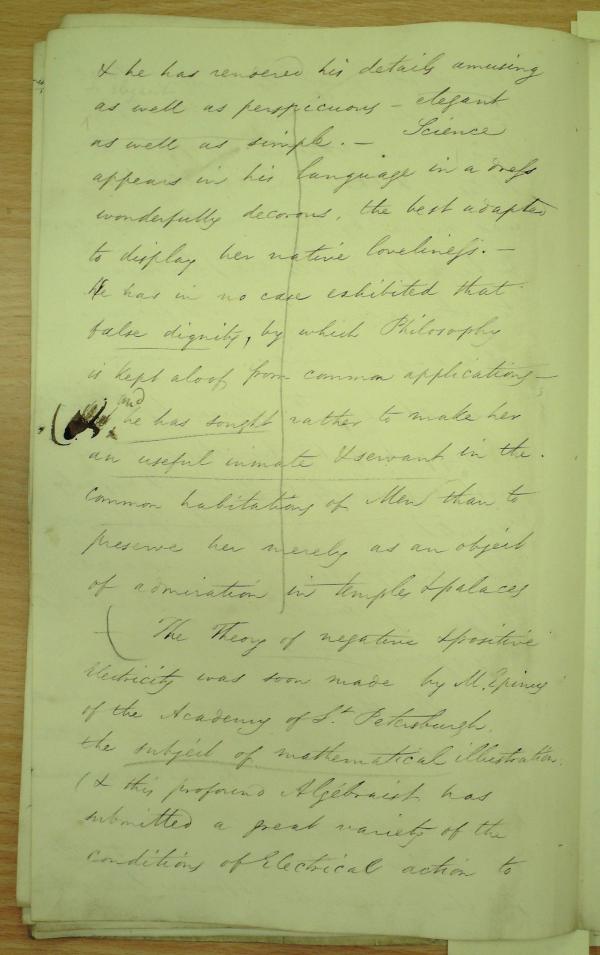 & he has rendered his details amusing
as well as perspicuous - elegant
as well as simple. - Science
appears in his language in a dress
wonderfully decorous, the best adapted
to display her native loveliness. -
He has in no case exhibited that
false dignity, by which Philosophy
is kept aloof from common applications -
and
he has sought rather to make her
an useful inmate & servant in the
common habitations of Men than to
preserve her merely as an object
of admiration in temples & palaces
The Theory of negative & positive
electricity was soon made by M. Epinus
of the Academy of St. Petersburgh.
the subject of mathematical illustration.
(& this profound Algebraist has
submitted a great variety of the
conditions of Electrical action to